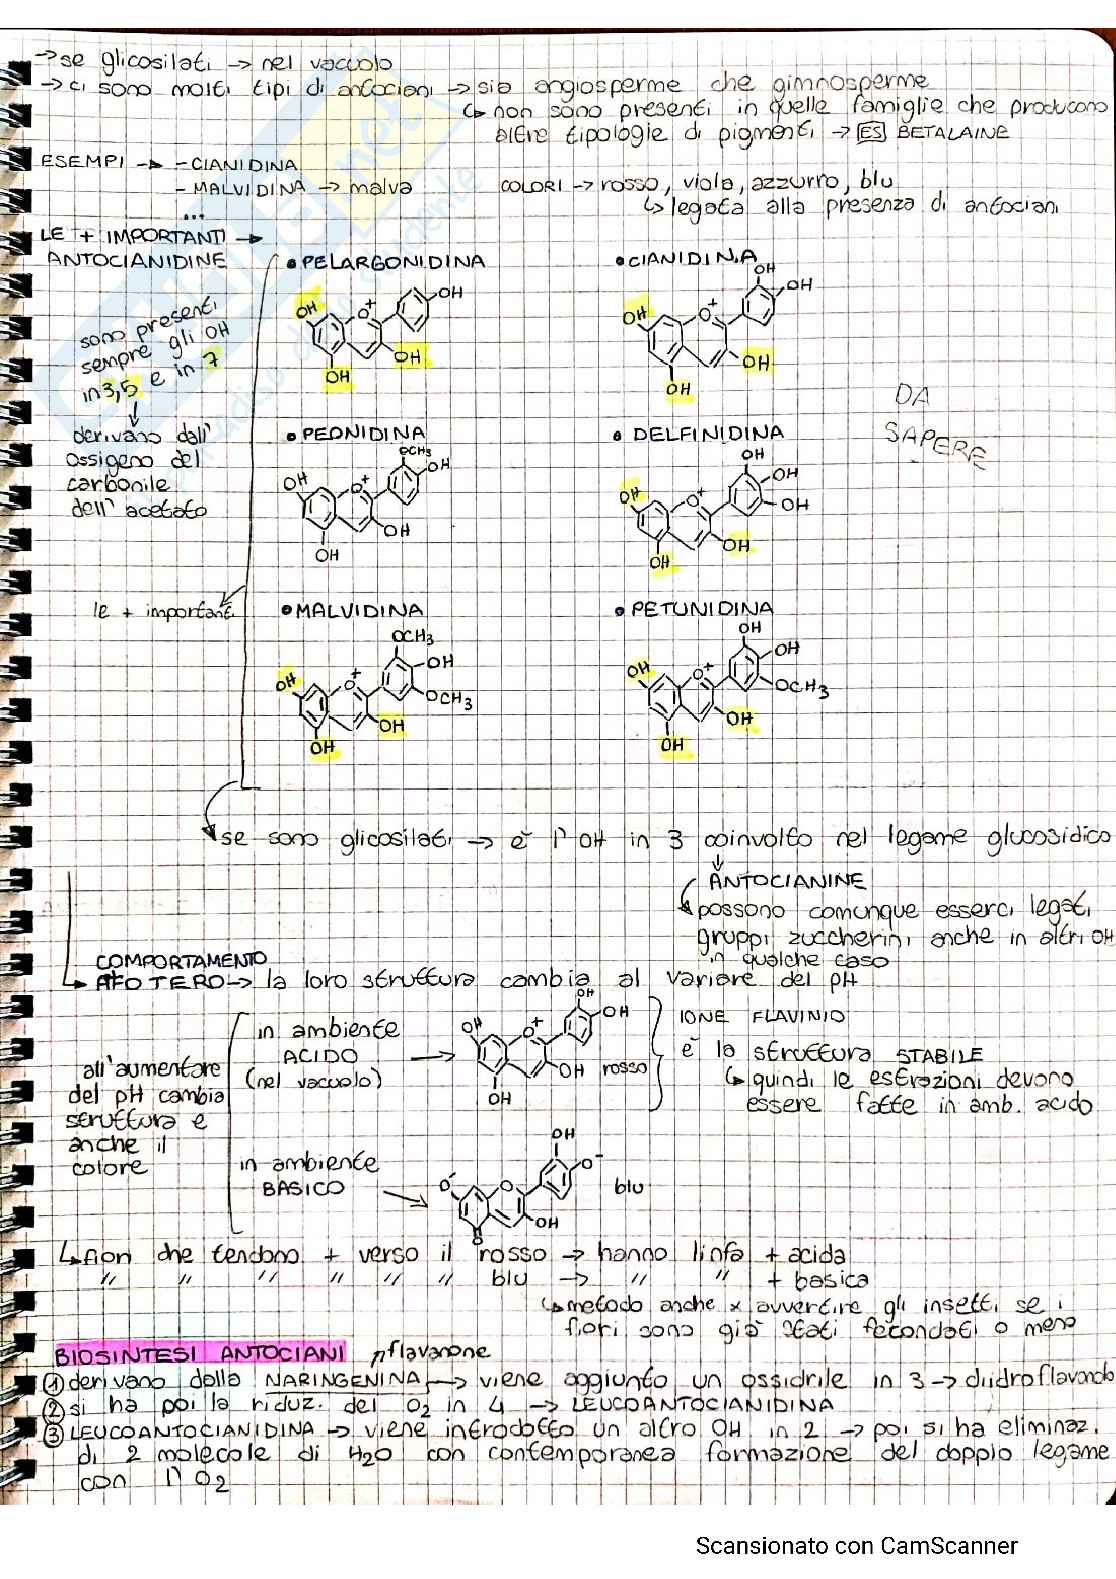 →se glicosilati → nel vacuolo
→ ci sono molti tipi di antociani → sia angiosperme che gimnosperme
↳ non sono presenti in quelle famiglie che producono
altre tipologie di pigmenti → ES BETALAINE
ESEMPI → - CIANIDINA
- MALVIDINA → malva
COLORI → rosso, viola, azzurro, blu
...
↳ legata alla presenza di antociani
LE + IMPORTANTI →
ANTOCIANIDINE
• PELARGONIDINA
• CIANIDINA
OH
OH
OH
O+
OH
OH
OH
OH
O+
OH
OH
sono presenti
sempre gli OH
in 3,5 e in 7
↓
derivano dall'
ossigeno del
carbonile
dell'acetato
DA
SAPERE
• PEONIDINA
• DELFINIDINA
OCH3
OH
OH
O+
OH
OH
OH
OH
OH
OH
O+
OH
OH
le + importanti
• MALVIDINA
• PETUNIDINA
OCH3
OH
OCH3
OH
O+
OH
OH
OH
OH
OCH3
OH
O+
OH
OH
se sono glicosilati → è l'OH in 3 coinvolto nel legame glucosidico
↓
ANTOCIANINE
possono comunque esserci legati
gruppi zuccherini anche in altri OH
in qualche caso
COMPORTAMENTO
AFOTERO → la loro struttura cambia al variare del pH
all'aumentare
del pH cambia
struttura e
anche il
colore
in ambiente
ACIDO →
(nel vacuolo)
OH
OH
OH
O+
OH
OH
rosso
IONE FLAVINIO
è la struttura STABILE
↳ quindi le estrazioni devono
essere fatte in amb. acido
in ambiente
BASICO →
OH
O-
O-
O
OH
O
blu
↳ fiori che tendono + verso il rosso → hanno linfa + acida
" " " " " " blu → " " + basica
↳ metodo anche x avvertire gli insetti se i
fiori sono già stati fecondati o meno
BIOSINTESI ANTOCIANI
flavanone
① derivano dalla NARINGENINA → viene aggiunto un ossidrile in 3 → diidroflavonolo
② si ha poi la riduz. del O2 in 4 → LEUCOANTOCIANIDINA
③ LEUCOANTOCIANIDINA → viene introdotto un altro OH in 2 → poi si ha eliminaz.
di 2 molecole di H2O con contemporanea formazione del doppio legame
con l'O2
Scansionato con CamScanner